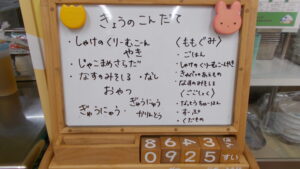 きょうのこんだて
・しゃけのくりーむこーん
やき
・じゃこまめさらだ
・なすのみそしる ・なし
おやつ
ぎゅうにゅう・
ぎゅうにゅう
かりんとう
〈ももぐみ〉
・ごはん
・しゃけのくりーむこーんやき
・なすのみそしる
〈ごごしょく〉
・すーぷ
・くだもの
8 6 4 3
0 9 2 5 すい